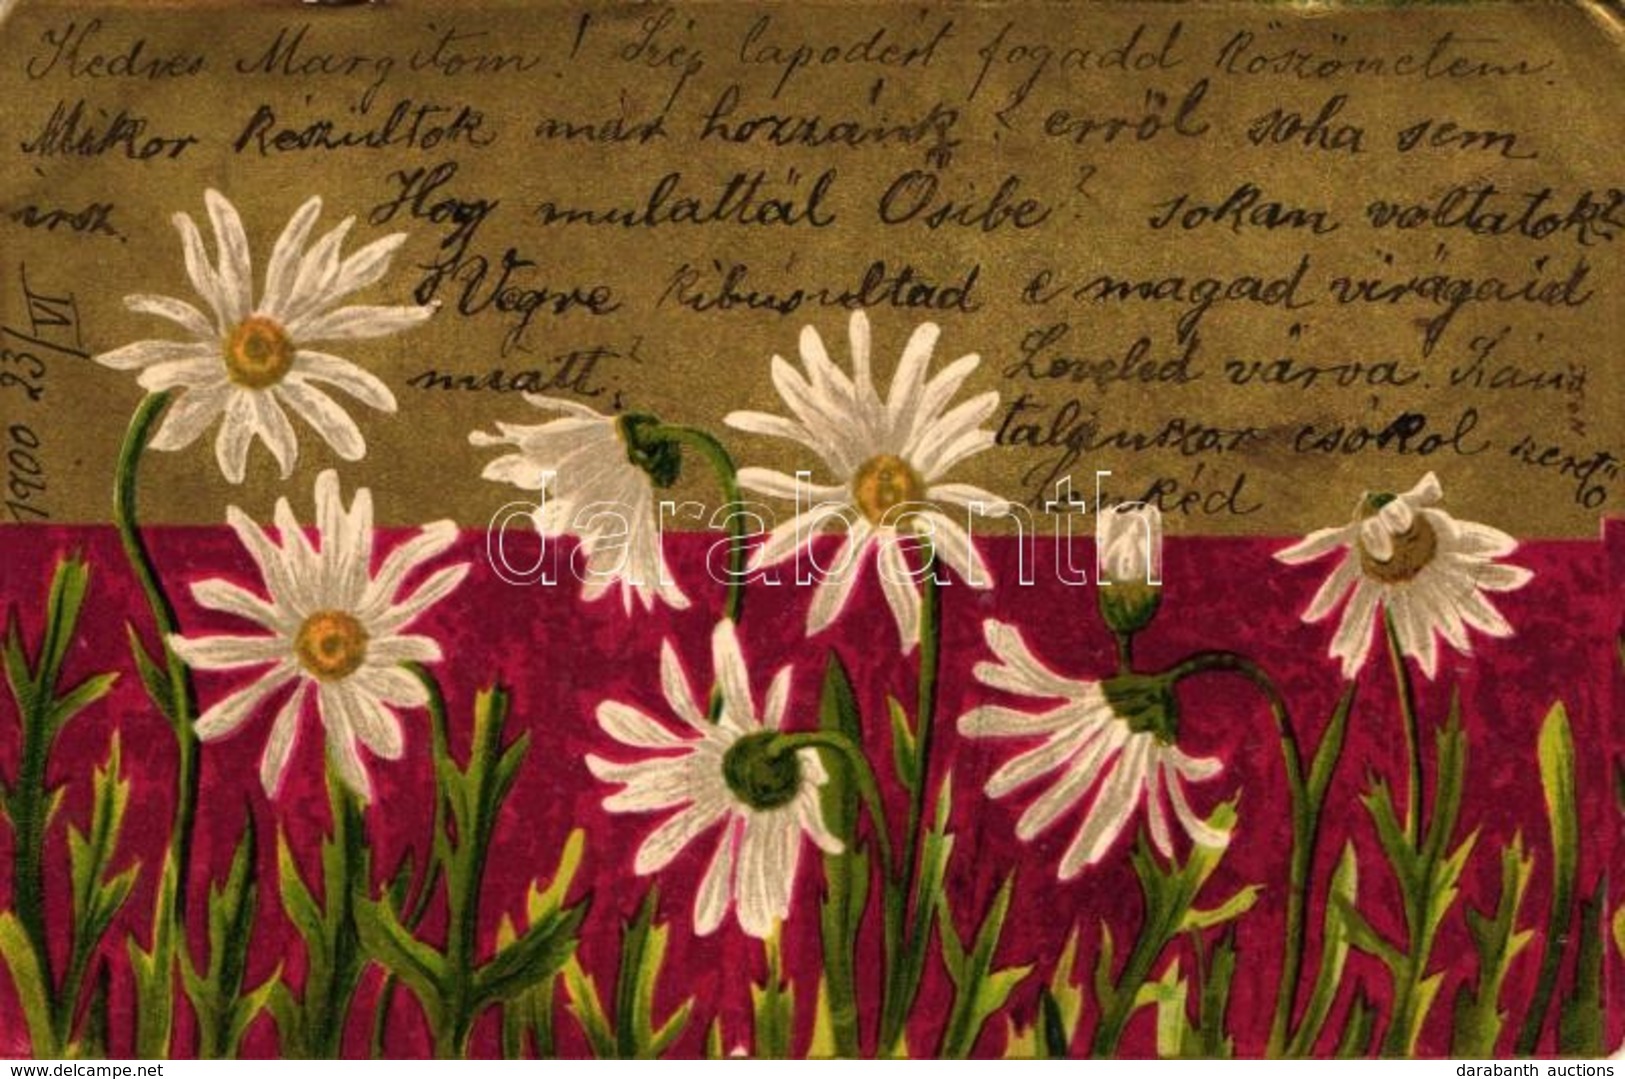 Kedves Margitom! Szép lapodért fogadd köszönetem.
Mikor készültok már hozzánk? erről soha sem
irsz. Hogy mulattál Ősibe? sokan voltatok?
Végre kibúsultad e magad virágaid
miatt? Leveled várva.
csókol szerető
1900 23/VI
darabanth
www.delcampe.net
darabanth auctions